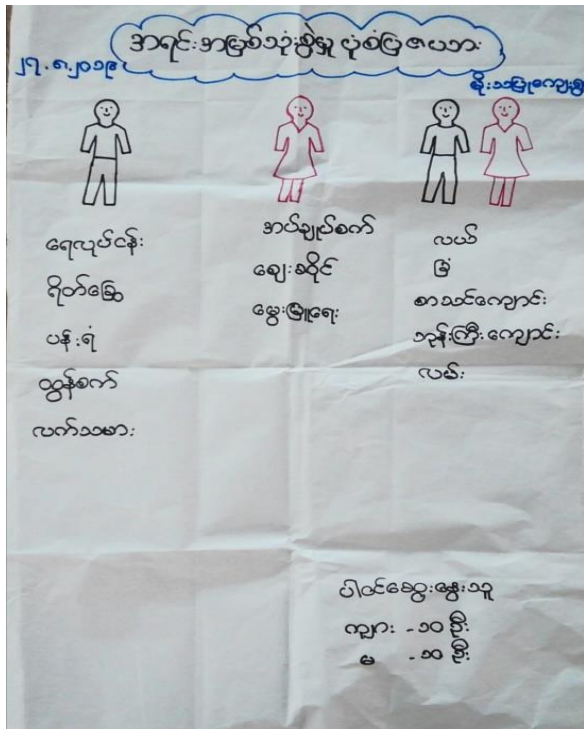 အရင်းအမြစ်သုံးစွဲမှု ပုံစံပြဇယား
၂၇.၈.၂၀၁၉
မိုးသဖြူကျေးရွာ
ရေလုပ်ငန်း
ရိတ်ခြွေ
ပန်းရံ
ထွန်စက်
လက်သမား
အပ်ချုပ်စက်
ဈေးဆိုင်
မွေးမြူရေး
လယ်
ခြံ
စာသင်ကျောင်း
ဘုန်းကြီးကျောင်း
လမ်း
ပါဝင်ဆွေးနွေးသူ
ကျား - ၁၀ ဦး
မ - ၁၀ ဦး